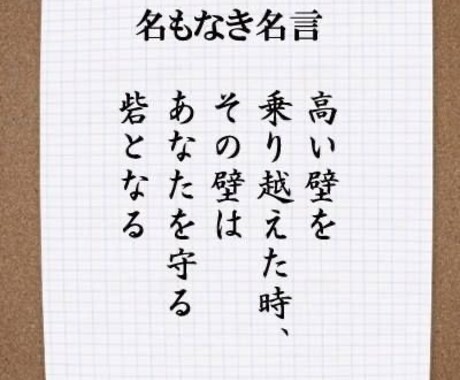 名もなき名言
高い壁を
乗り越えた時、
その壁は
あなたを守る
砦となる